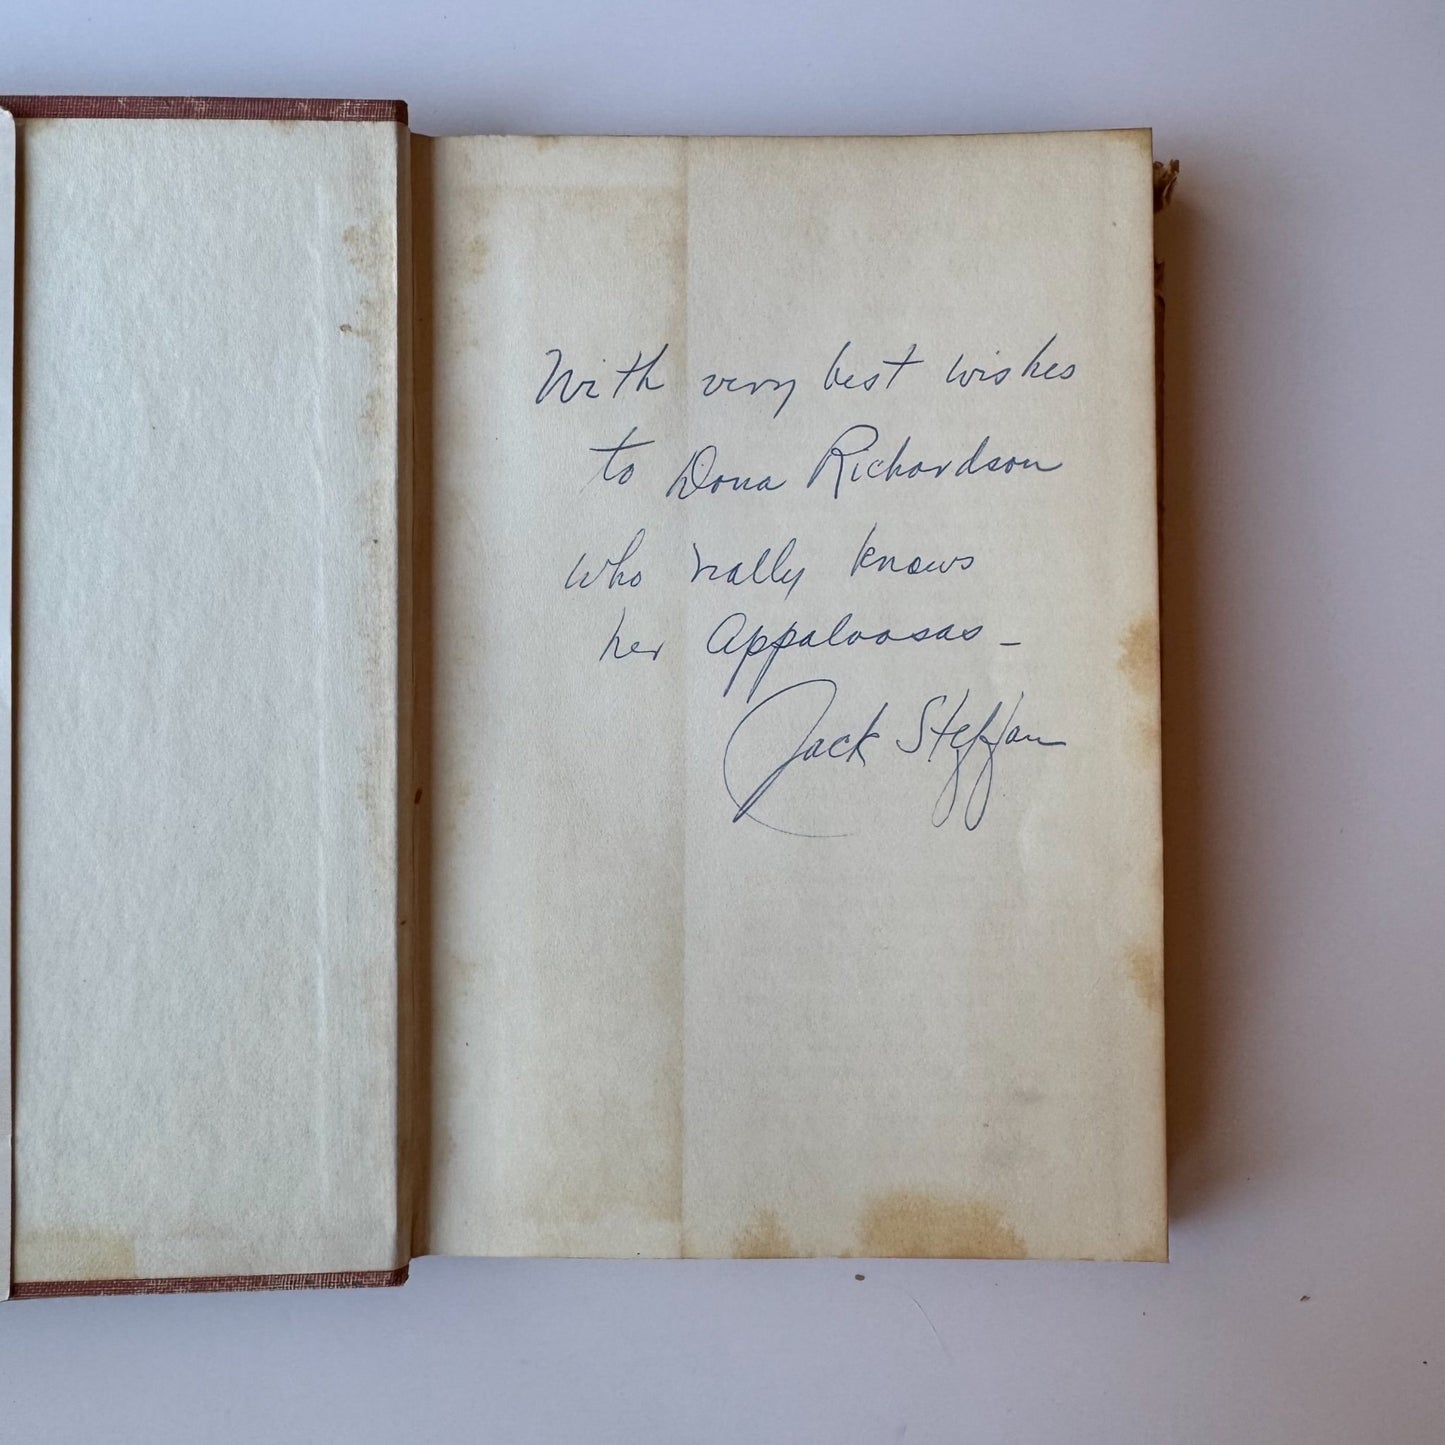 With very best wishes
to Dona Richardson
who really knows
her Appaloosas –
Jack Steffan